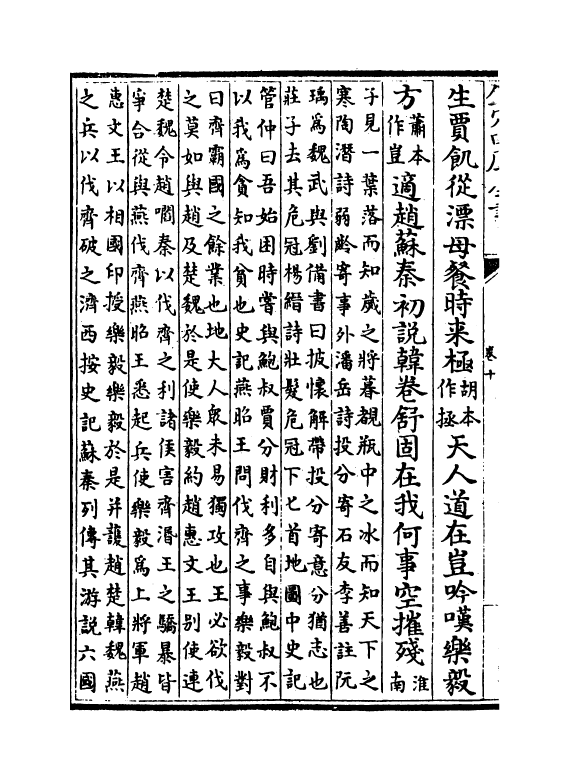 生賈飢從漂母餐時来極胡本作拯天人道在豈吟嘆樂毅
方蕭本作豈適趙蘇秦初説韓卷舒固在我何事空摧殘淮南
子見一葉落而知歲之將暮覩瓶中之冰而知天下之
寒陶潜詩弱齡寄事外潘岳詩投分寄石友李善註阮
瑀為魏武與劉備書曰披懐解帶投分寄意分猶志也
莊子去其危冠楊縉詩壯髮危冠下匕首地圖中史記
管仲曰吾始困時嘗與鮑叔賈分財利多自與鮑叔不
以我為貪知我貧也史記燕昭王問伐齊之事樂毅對
曰齊霸國之餘業也地大人衆未易獨攻也王必欲伐
之莫如與趙及楚魏於是使樂毅約趙惠文王别使連
楚魏令趙嚪秦以伐齊之利諸侯害齊湣王之驕暴皆
爭合從與燕伐齊燕昭王悉起兵使樂毅為上將軍趙
惠文王以相國印授樂毅樂毅於是并護趙楚韓魏燕
之兵以伐齊破之濟西按史記蘇秦列傳其游説六國
卷十